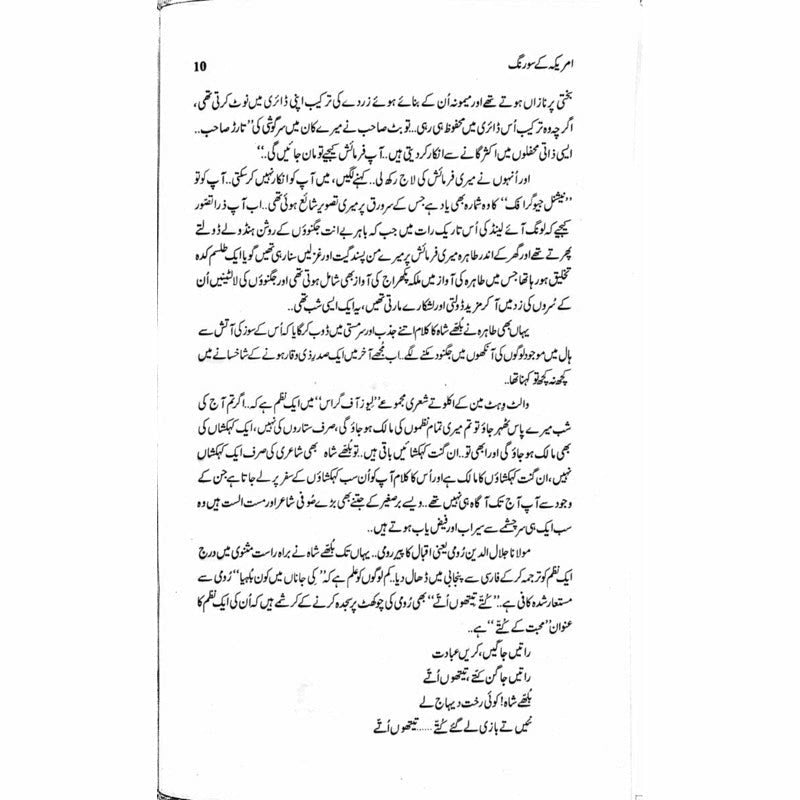 امریکہ کے سو رنگ
10
بختی پر نازاں ہوتے تھے اور میمونہ اُن کے بنائے ہوئے زردے کی ترکیب اپنی ڈائری میں نوٹ کرتی تھی،
اگرچہ وہ ترکیب اُس ڈائری میں محفوظ ہی رہی.. تو بٹ صاحب نے میرے کان میں سرگوشی کی ”تارڑ صاحب..
ایسی ذاتی محفلوں میں اکثر گانے سے انکار کر دیتی ہیں.. آپ فرمائش کیجیے تو مان جائیں گی..“
اور اُنہوں نے میری فرمائش کی لاج رکھ لی.. کہنے لگیں، میں آپ کو انکار نہیں کر سکتی.. آپ کو تو
”نیشنل جیوگرافک“ کا وہ شمارہ بھی یاد ہے جس کے سرورق پر میری تصویر شائع ہوئی تھی.. اب آپ ذرا تصور
کیجیے کہ لونگ آئے لینڈ کی اُس تاریک رات میں جب کہ باہر بے انت جگنوؤں کے روشن ہنڈولے ڈولتے
پھرتے تھے اور گھر کے اندر طاہرہ میری فرمائش پر میرے من پسند گیت اور غزلیں سنا رہی تھیں گویا ایک طلسم کدہ
تخلیق ہو رہا تھا جس میں طاہرہ کی آواز میں ملکہ پکھراج کی آواز بھی شامل ہوتی تھی اور جگنوؤں کی لالٹینیں اُن
کے سُروں کی زد میں آ کر مزید ڈولتی اور لشکارے مارتی تھیں، یہ ایک ایسی شب تھی..
یہاں بھی طاہرہ نے بُلھے شاہ کا کلام اتنے جذب اور سرمستی میں ڈوب کر گایا کہ اُس کے سوز کی آتش سے
ہال میں موجود لوگوں کی آنکھوں میں جگنو دمکنے لگے.. اب مُجھے آخر میں ایک صدرِ ذی وقار ہونے کے شاخسانے میں
کچھ نہ کچھ تو کہنا تھا..
والٹ وہٹ مین کے اکلوتے شعری مجموعے ”لیوز آف گراس“ میں ایک نظم ہے کہ.. اگر تم آج کی
شب میرے پاس ٹھہر جاؤ تو تم میری تمام نظموں کی مالک ہو جاؤ گی، صرف ستاروں کی نہیں، ایک کہکشاں کی
بھی مالک ہو جاؤ گی اور ابھی تو.. ان گنت کہکشائیں باقی ہیں.. تو بُلھے شاہ بھی شاعری کی صرف ایک کہکشاں
نہیں، ان گنت کہکشاؤں کا مالک ہے اور اُس کا کلام آپ کو اُن سب کہکشاؤں کے سفر پر لے جاتا ہے جن کے
وجود سے آپ آج تک آگاہ ہی نہیں تھے.. ویسے برصغیر کے جتنے بھی بڑے صُوفی شاعر اور مست الست ہیں وہ
سب ایک ہی سرچشمے سے سیراب اور فیض یاب ہوتے ہیں..
مولانا جلال الدین رُومی یعنی اقبال کا پیرِ رومی.. یہاں تک بُلھے شاہ نے براہ راست مثنوی میں درج
ایک نظم کو ترجمہ کر کے فارسی سے پنجابی میں ڈھال دیا.. کم لوگوں کو علم ہے کہ ”کی جاناں میں کون بلھیا“ رُومی سے
مستعار شدہ کافی ہے.. ”کُتّے تیتھوں اُتّے“ بھی رُومی کی چوکھٹ پر سجدہ کرنے کے کرشمے ہیں کہ اُن کی ایک نظم کا
عنوان ”محبت کے کُتّے“ ہے..
راتیں جاگیں، کریں عبادت
راتیں جاگن کتّے، تیتھوں اُتّے
بُلھے شاہ! کوئی رخت ویہاج لے
نہیں تے بازی لے گئے کُتّے...... تیتھوں اُتّے